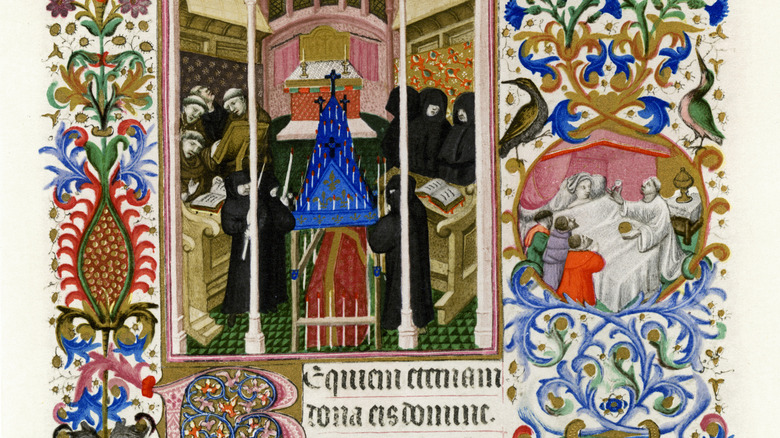 REquiem eternam
dona eis domine.